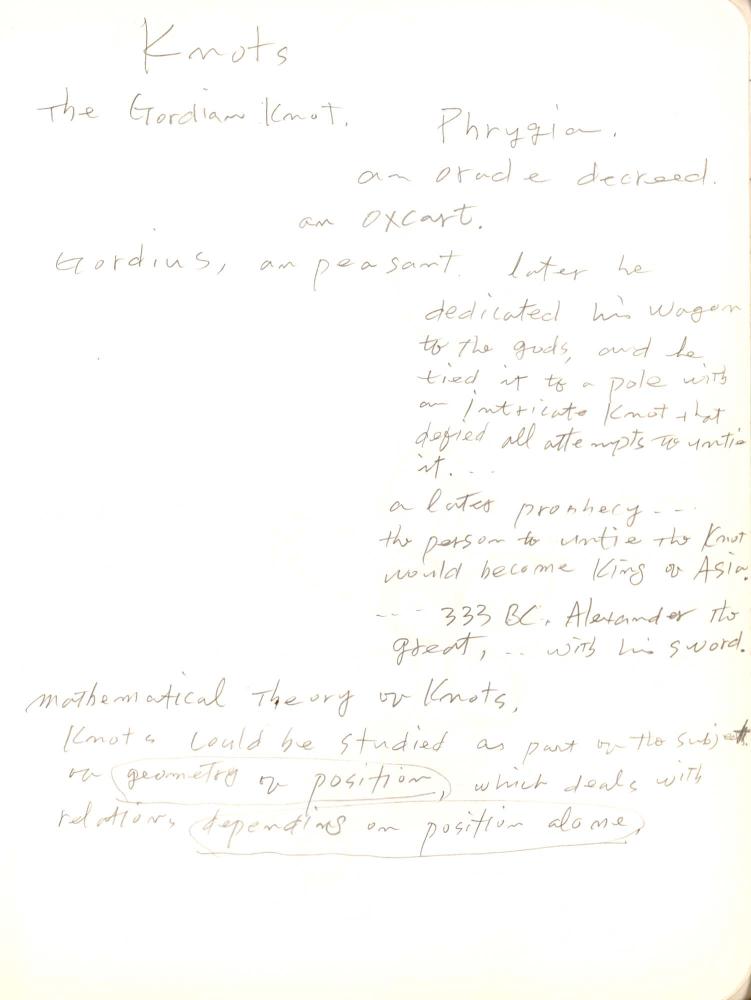 Knots
The Gordian Knot. Phrygia.
an oracle decreed.
an oxcart.
Gordius, an peasant. later he
dedicated his wagon
to the gods, and he
tied it to a pole with
an intricate Knot that
defied all attempts to untie
it....
a later prophecy ---
the person to untie the Knot
would become King of Asia.
--- 333 BC. Alexander the
great, .. with his sword.
mathematical Theory of Knots,
Knots could be studied as part of the subject
of geometry of position, which deals with
relations depending on position alone,